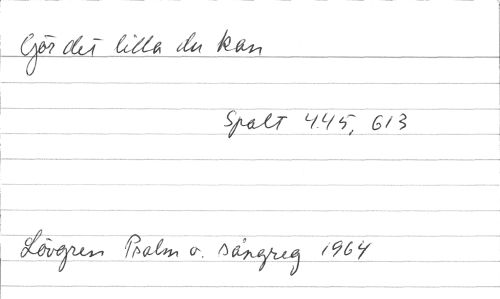 Gör det lilla du kan
Spalt 445, 613
Lövgren Psalm o. sångreg 1964